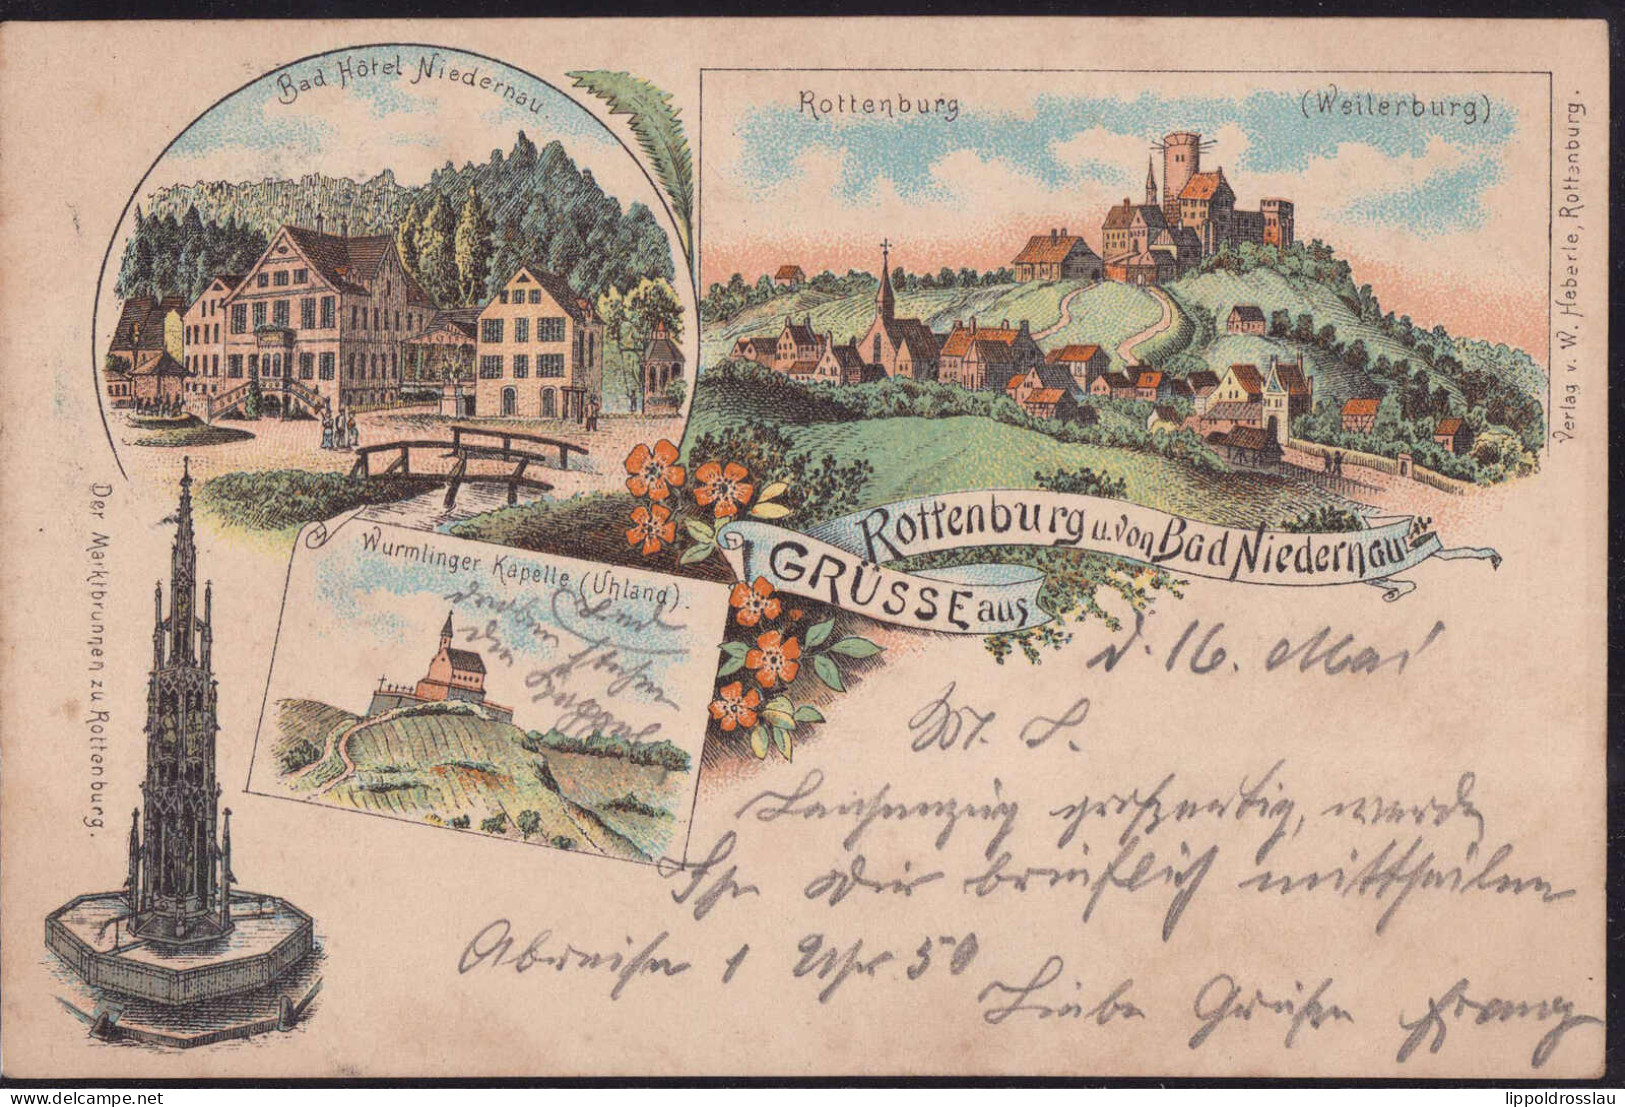 Bad Hôtel Niedernau.
Rottenburg
(Weilerburg)
Verlag v. W. Heberle, Rottenburg.
GRÜSSE aus
Rottenburg u. von Bad Niedernau
Wurmlinger Kapelle (Uhland).
Der Marktbrunnen zu Rottenburg.
droben
stehen
d. 16. Mai
M. L.
Leichenzug großartig, werde
Ihn Dir brieflich mittheilen
Abreise 1 Uhr 50
Liebe Grüße Franz
lippoldrosslau